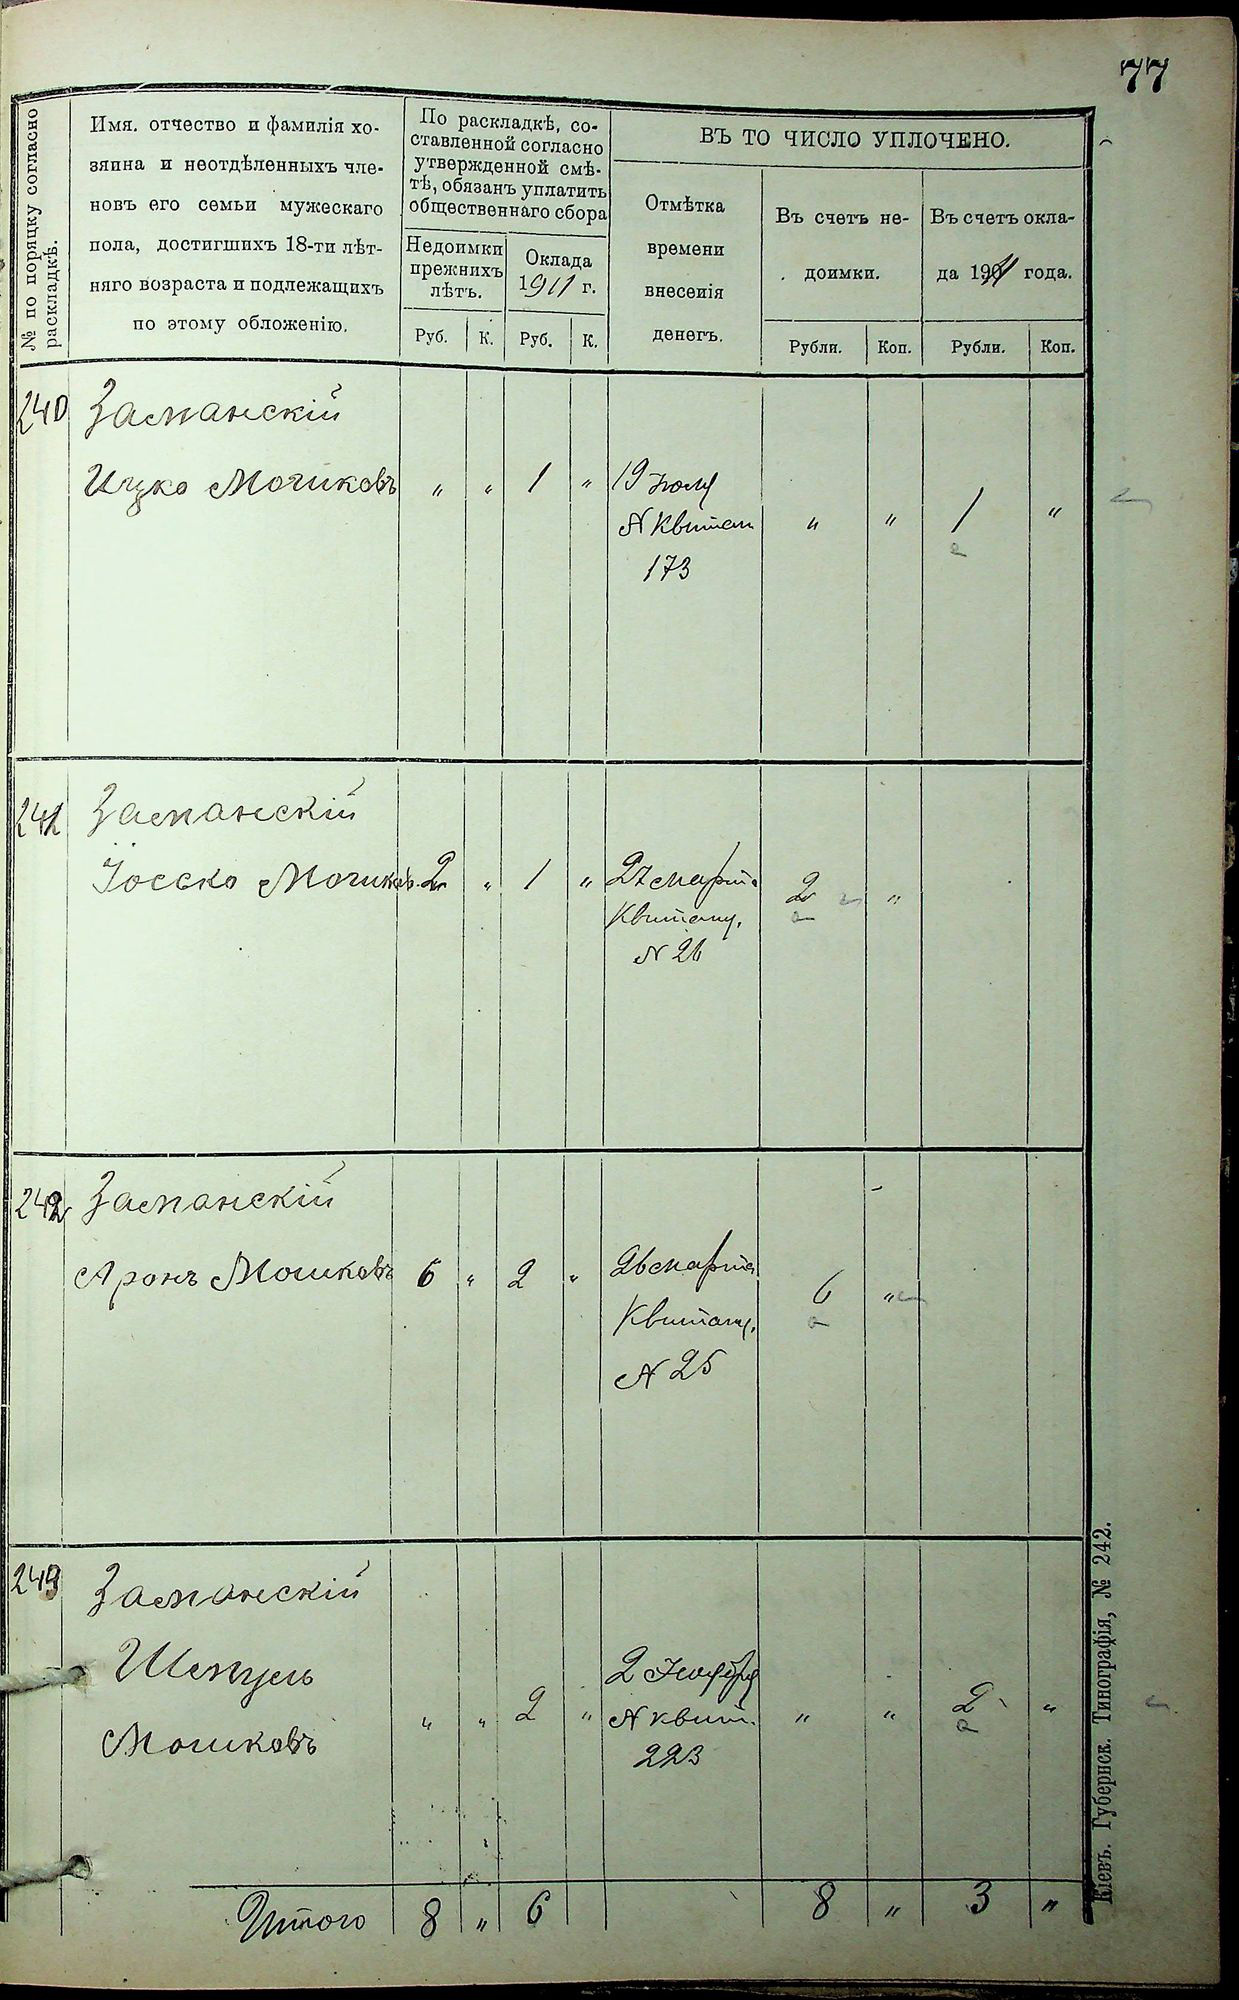 77
№ по порядку согласно
раскладкѣ.
Имя, отчество и фамилія хо-
зяина и неотдѣленныхъ чле-
новъ его семьи мужескаго
пола, достигшихъ 18-ти лѣт-
няго возраста и подлежащихъ
по этому обложенію.
По раскладкѣ, со-
ставленной согласно
утвержденной смѣ-
тѣ, обязанъ уплатить
общественнаго сбора
Недоимки
прежнихъ
лѣтъ.
Оклада
1911 г.
Руб. К. Руб. К.
ВЪ ТО ЧИСЛО УПЛОЧЕНО.
Отмѣтка
времени
внесенія
денегъ.
Въ счетъ не-
доимки.
Въ счетъ окла-
да 1911 года.
Рубли. Коп. Рубли. Коп.
240 Заманскій
Ицко Мошковъ " " 1 " 19 Іюля " " 1 "
№ Квитан
173
241 Заманскій
Іосско Мошковъ 2 " 1 " 27 марта 2 "
Квитанц.
№ 26
242 Заманскій
Аронъ Мошковъ 6 " 2 " 26 марта 6 "
Квитанц.
№ 25
243 Заманскій
Шемуль
Мошковъ " " 2 " 2 Ноября " " 2 "
№ квит.
223
Итого 8 " 6 8 " 3 "
Кіевъ. Губернск. Типографія, № 242.